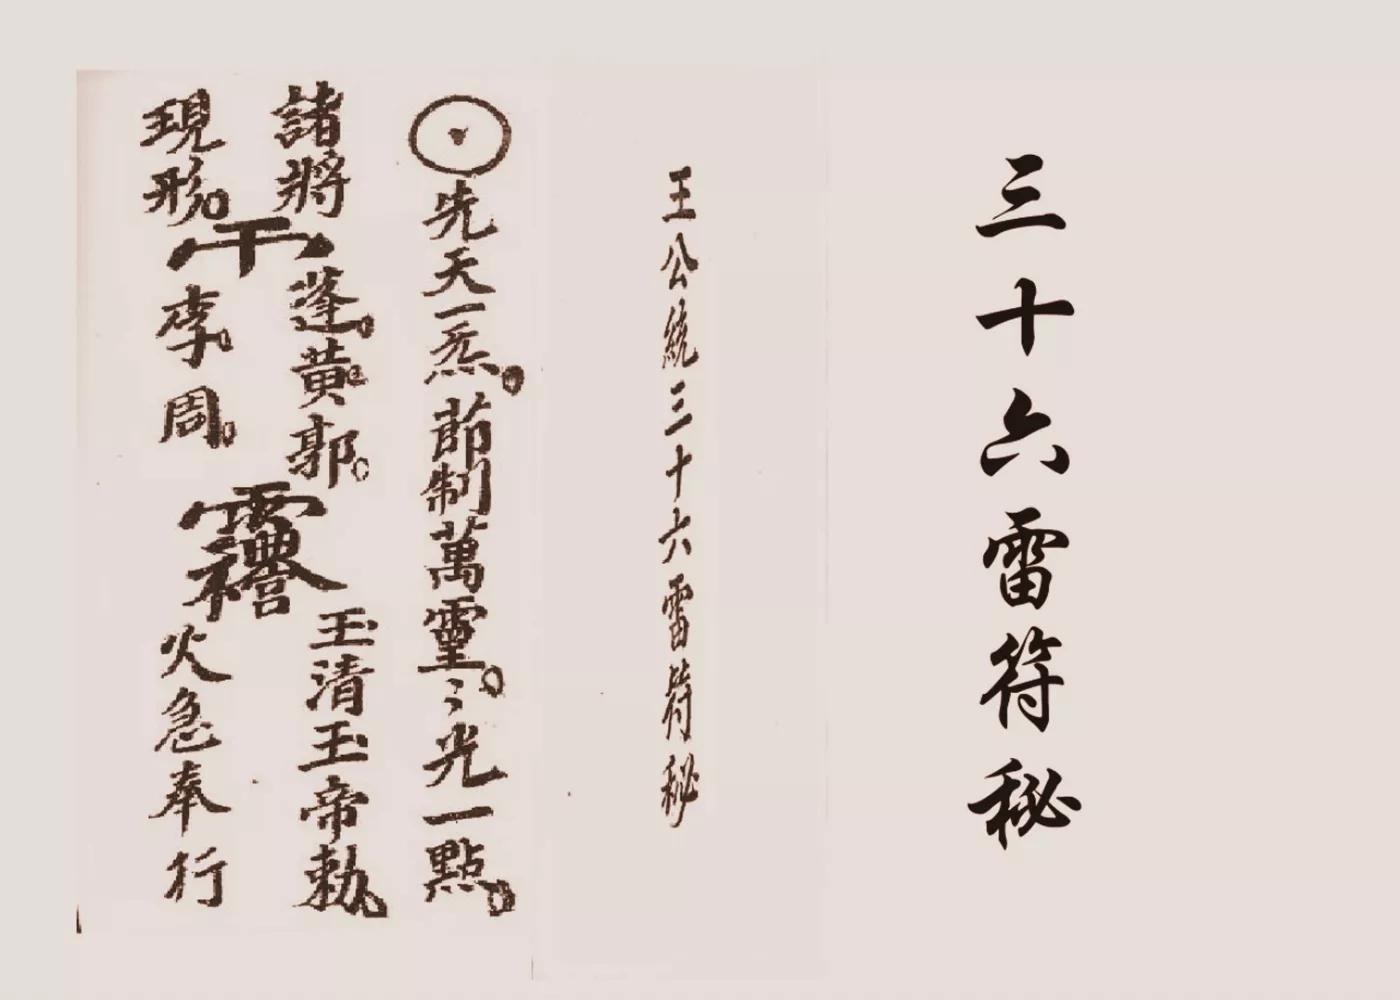 三十六雷符秘
王公統三十六雷符秘
先天一炁。莭制萬靈。〻光一點。
諸將蓬。黃。郭。玉清玉帝勅。
現形。李。周。火急奉行